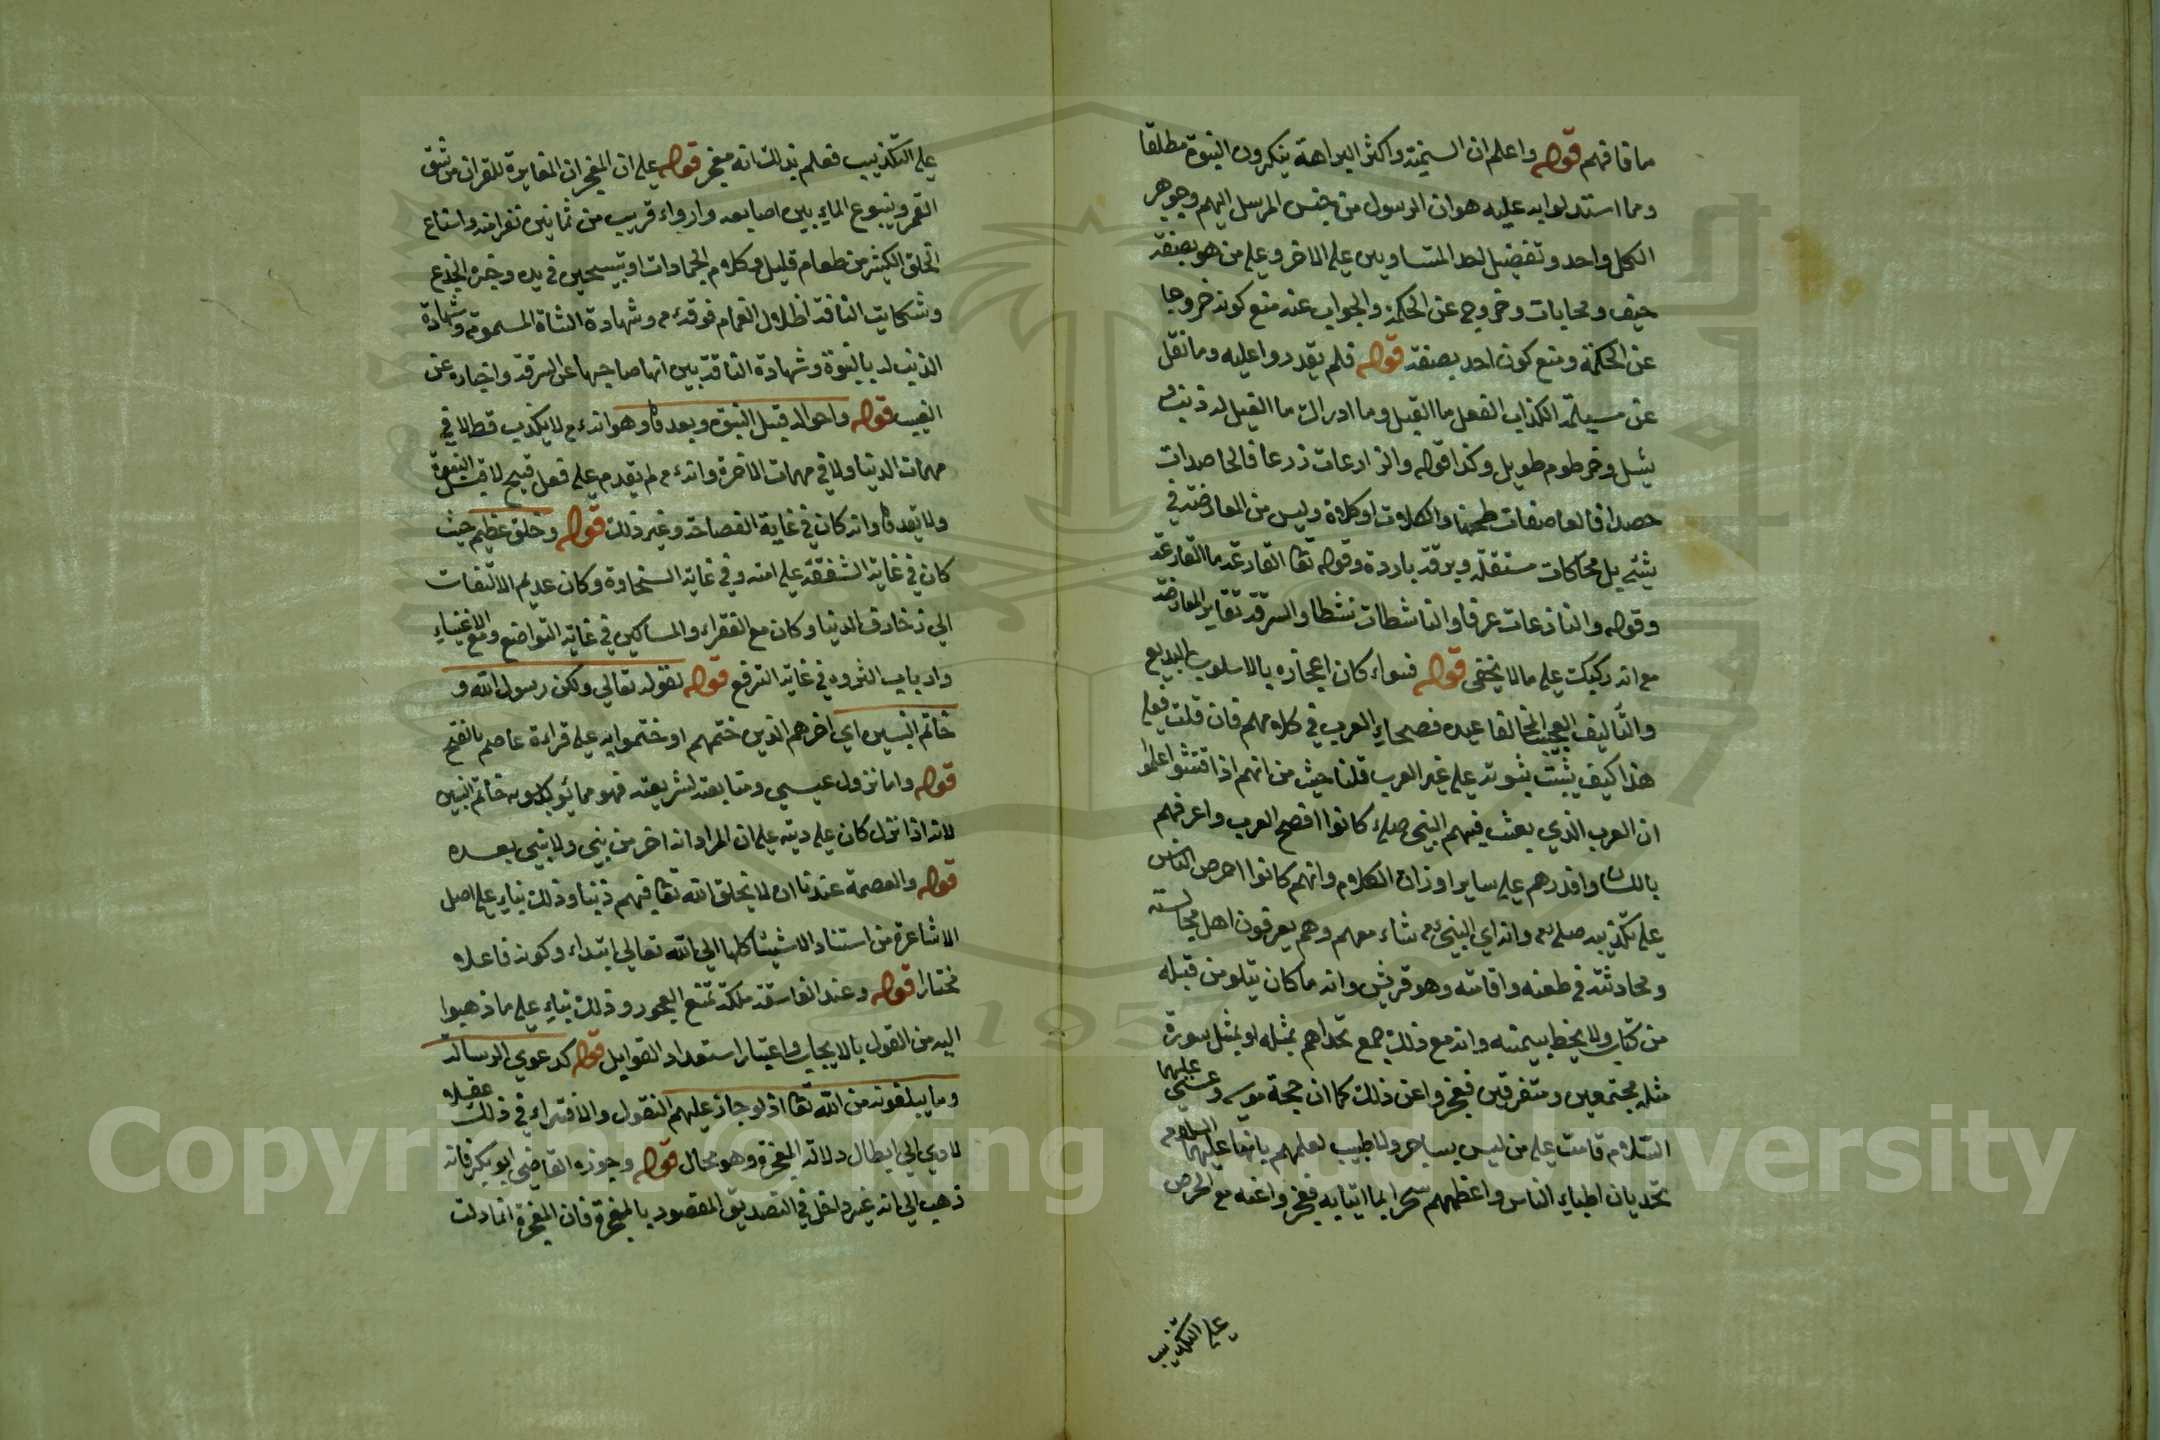 ما فاقهم قوله واعلم ان السمنية واكثر البراهمة ينكرون النبوة مطلقا
ومما استدلوا به عليه هو ان الرسول من جنس المرسل اليهم وجوهر
الكل واحد وتفضيل احد المتساويين على الاخر وعلى من هو بصفته
حيف ومحابات وخروج عن الحكمة والجواب عنه منع كونه خروجا
عن الحكمة ومنع كون احد بصفته قوله فلم يقدروا عليه وما نقل
عن مسيلمة الكذاب الفعل ما الفيل وما ادراك ما الفيل له ذنب
وخرطوم طويل وكذا قوله والزارعات زرعا فالحاصدات
حصدا فالعاصفات طحنا والاكلات اكلا وليس من المعارضة في
شيئ بل محاكات مستقلة وسرقة باردة وقوله تعا القارعة ما القارعة
وقوله والنازعات غرقا والناشطات نشطا والسرقة تغاير المعارضة
مع انه ركيك على ما لا يخفى قوله فسواء كان اعجازه بالاسلوب البديع
والتأليف العجيب المخالف عيده فصحاء العرب في كلامهم فان قلت فعلى
هذا كيف يثبت ثبوته على غير العرب قلنا حيث من انهم اذا فتشوا علموا
ان العرب الذي بعث فيهم النبي صلعم كانوا افصح العرب واعرفهم
باللسان واقدرهم على ساير اوزان الكلام وانهم كانوا احرص الناس
على تكذيبه صلعم وانه اي النبي ءم نشاء معهم وهم يعرفون اهل مجالسته
ومحادثته في ظعنه واقامته وهو قريش وانه ما كان يتلو من قبله
من كتاب ولا يخط بيمينه وانه مع ذلك جمع تحداهم بمثله او بمثل سورة
مثله مجتمعين ومتفرقين فعجزوا عن ذلك كما ان حجة موسى وعيسى عليهما
السلام قامت على من ليس بساحر ولا طبيب لعلمهم بانهما عليهما السلام
تحديان اطباء الناس واعظمهم سحرا بما اتيا به فعجزوا عنه مع الحرص
على التكذيب
على التكذيب فعلم بذلك انه معجز قوله على ان المعجزات المغايرة للقرآن من شق
القمر وينبوع الماء بين اصابعه وارواء قريب من ثمانين نفرا منه واشباع
الخلق الكثير من طعام قليل وكلام الجمادات او تسبيحين في يده وحنين الجذع
وشكايت الناقة اظلال الغمام فوقه ءم وشهادة الشاة المسمومة وشهادة
الذئب له بالنبوة وشهادة الناقة بين انها صاحبها عن السرقة واخباره عن
الغيب قوله واحواله قبل النبوة وبعدها وهو انه ءم لا يكذب قط لا في
مهمات الدنيا ولا في مهمات الاخرة وانه ءم لم يقدم على فعل قبيح لا قبل النبوة
ولا بعدها وانه كان في غاية الفصاحة وغير ذلك قوله وخلق عظيم حيث
كان في غاية الشفقة على امته وفي غاية السخاوة وكان عديم الالتفات
الى زخارف الدنيا وكان مع الفقراء والمساكين في غاية التواضع ومع الاغنياء
وارباب الثروه في غاية الترفع قوله لقوله تعالى ولكن رسول الله و
خاتم النبيين اي اخرهم الذين ختمهم او ختموا به على قراءة عاصم بالفتح
قوله واما نزول عيسى ومتابعته لشريعته فهو مما يؤكد كونه خاتم النبيين
لانه اذا نزل كان على دينه على ان المراد انه اخر من نبي ولا نبي بعده
قوله والعصمة عندنا ان لا يخلق الله تعا فيهم ذنبا وذلك بناء على اصل
الاشاعرة من استناد الاشيئا كلها الى الله تعالى ابتداء وكونه فاعلا
مختارا قوله وعند الفلاسفة ملكة تمنع الفجور وذلك بناء على ما ذهبوا
اليه من القول بالايجاب واعتبار استعداد القوابل قوله كدعوى الرسالة
وما يبلغونه من الله تعا اذ لو جاز عليهم التقول والافتراء في ذلك عقلا
لادى الى ابطال دلالة المعجزة وهو محال قوله وجوزه القاضى ابو بكر فانه
ذهب الى انه غير داخل في التصديق المقصود بالمعجزة فان المعجزة انما دلت
Copyright © King Saud University
1957